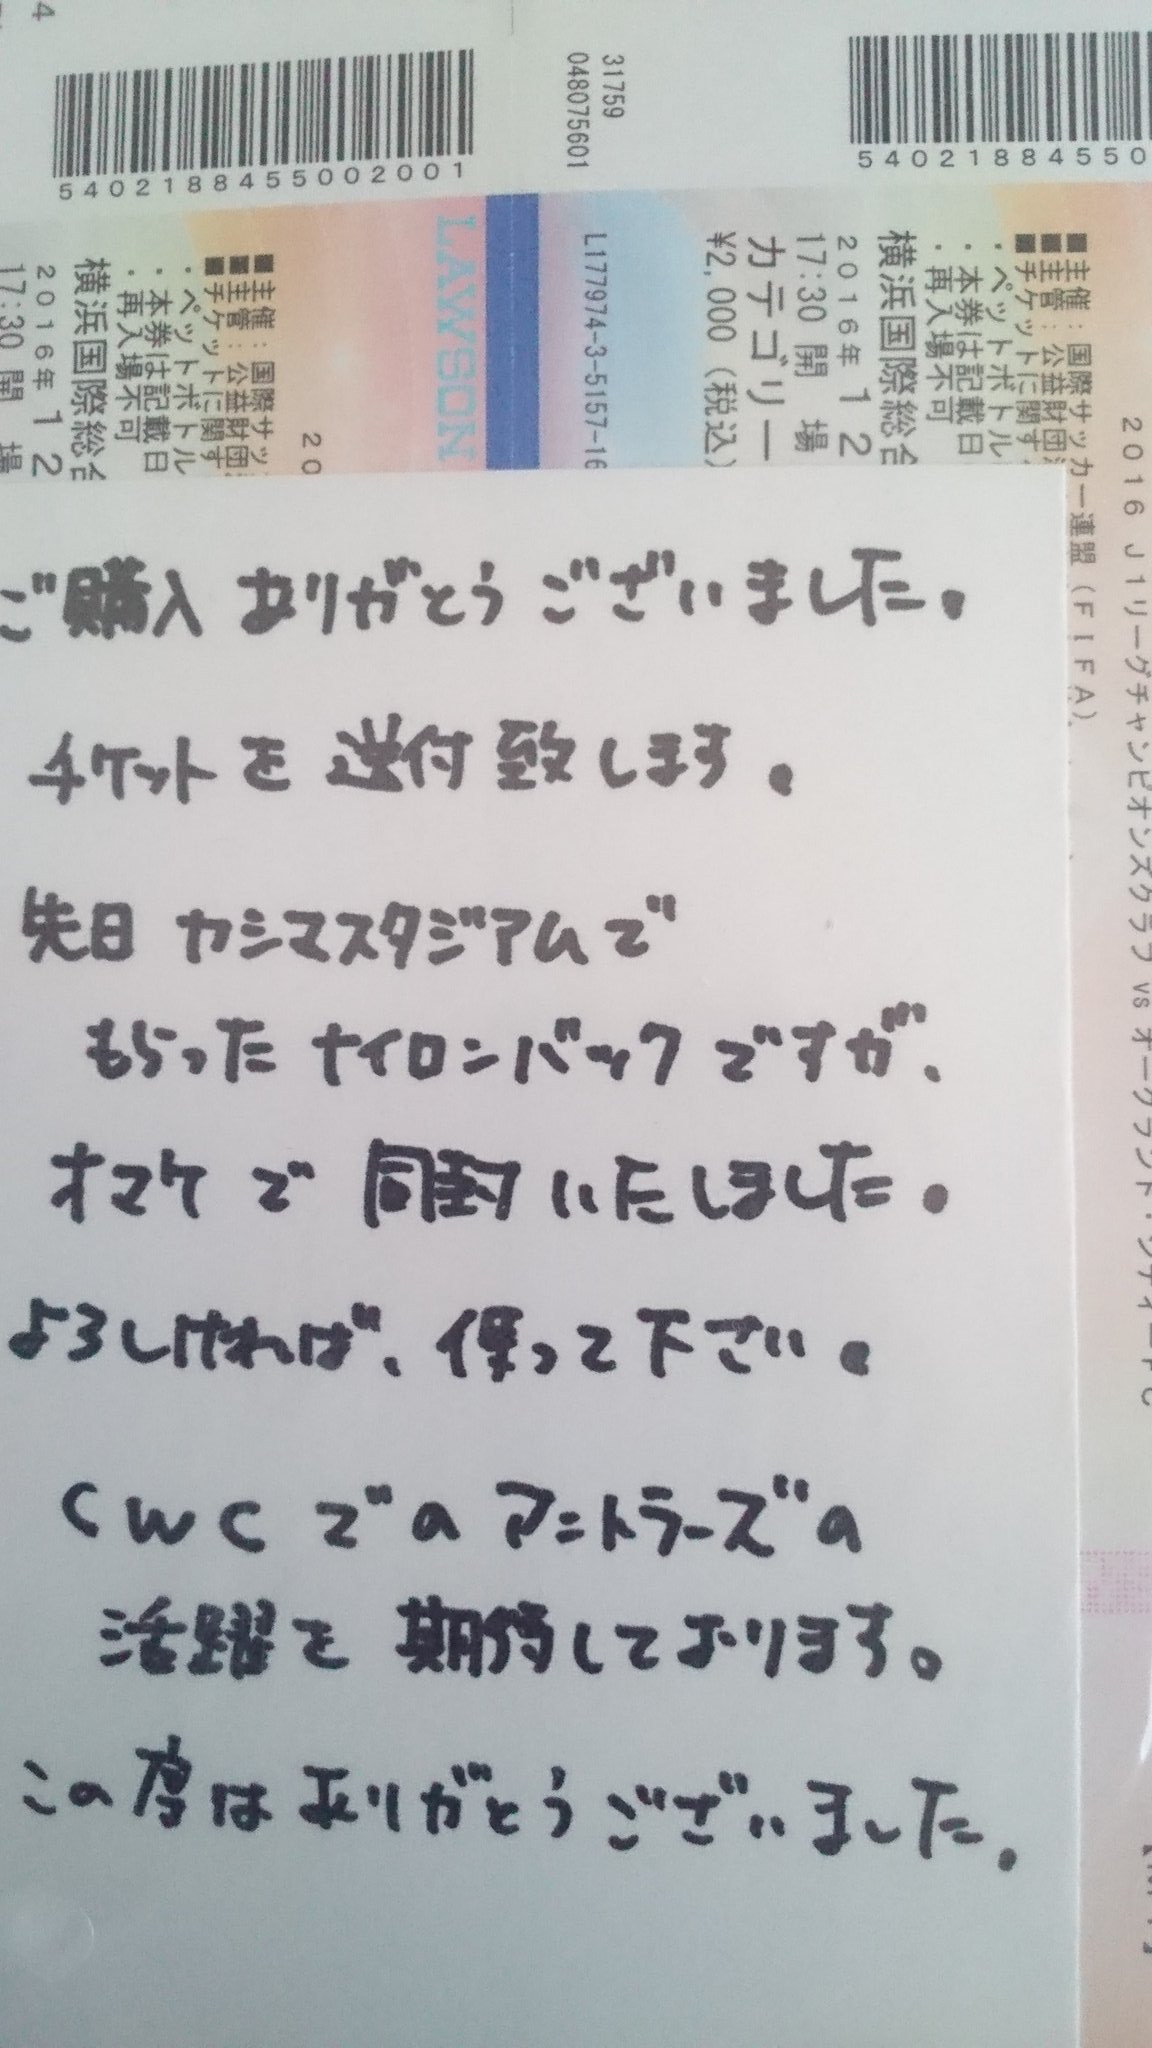 4
31759
048075601
5402188455002001
54021884550
LAWSON
L177974-3-5157-16
■主催:国際サッ
■主管:公益財団
■チケットに関す
・ペットボトル
・本券は記載日
・再入場不可
横浜国際総合
2016年12
17:30開 場
20
■主催:国際サッカー連盟(FIFA)
■主管:公益財団
■チケットに関す
・ペットボトル
・本券は記載日
・再入場不可
横浜国際総合
2016年12
17:30開 場
カテゴリー
¥2,000(税込)
2016 J1リーグチャンピオンズクラブ vs オークランド・シティーFC
ご購入ありがとうございました。
チケットを送付致します。
先日カシマスタジアムで
もらったナイロンバックですが、
オマケで同封いたしました。
よろしければ、使って下さい。
CWCでのアントラーズの
活躍を期待しております。
この度はありがとうございました。